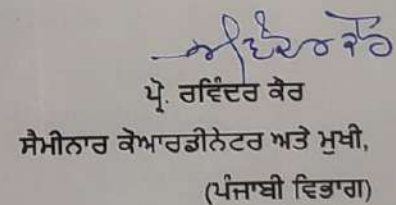 ਪ੍ਰੋ. ਰਵਿੰਦਰ ਕੌਰ
ਸੈਮੀਨਾਰ ਕੋਆਰਡੀਨੇਟਰ ਅਤੇ ਮੁਖੀ,
(ਪੰਜਾਬੀ ਵਿਭਾਗ)